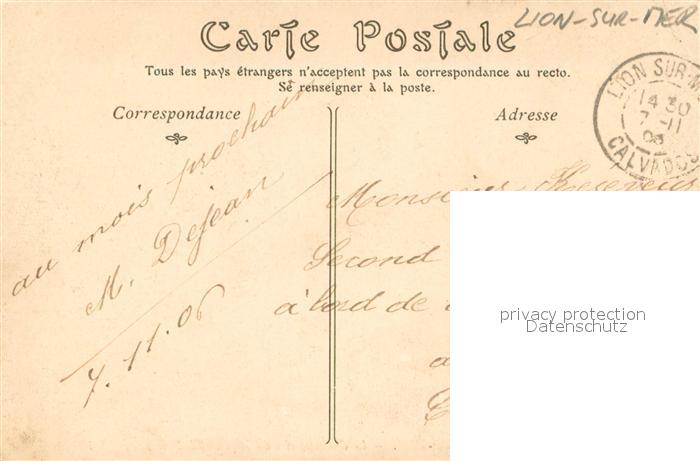 LION-SUR-MER
Carte Postale
Tous les pays étrangers n'acceptent pas la correspondance au recto.
Se renseigner à la poste.
Correspondance
Adresse
LION SUR M
14 30
7 -11
CALVADOS
au mois prochain
M. Dejean
7.11.06
Monsieur
Second
à bord de
privacy protection
Datenschutz